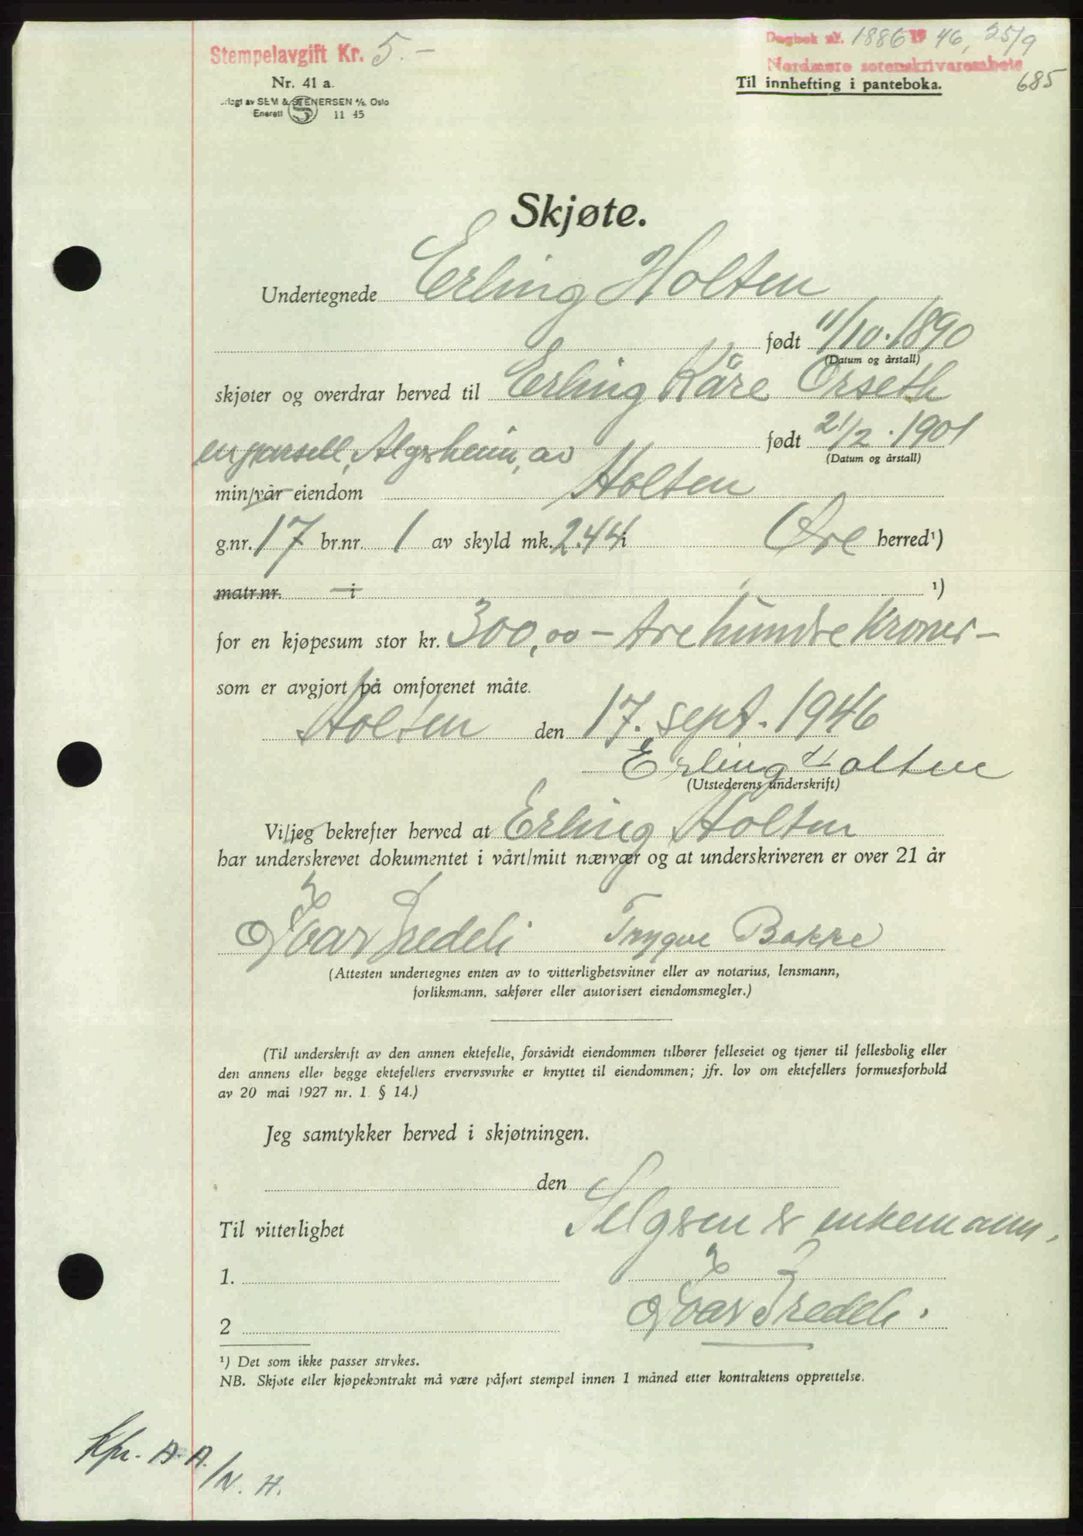 Stempelavgift Kr. 5.-
Dagbok nr. 1886 1946, 25/9
Nordmøre sorenskriverembete
685
Nr. 41 a.
Til innhefting i panteboka.
SEM & STENERSEN A/S, Oslo
Enerett S 11 45
Skjøte.
Undertegnede Erling Holten
født 11/10.1890
(Datum og årstall)
skjøter og overdrar herved til Erling Kåre Orseth
født 21/2.1901
(Datum og årstall)
en parsell, Algrheim, av
min/vår eiendom Holten
g.nr. 17 br.nr. 1 av skyld mk. 2.44 i Øre herred¹)
matr.nr. i ¹)
for en kjøpesum stor kr. 300,00 - trehundre kroner -
som er avgjort på omforenet måte.
Holten den 17. sept. 1946
Erling Holten
(Utstederens underskrift)
Vi/jeg bekrefter herved at Erling Holten
har underskrevet dokumentet i vårt/mitt nærvær og at underskriveren er over 21 år
Ivar Fredeli Trygve Bakke
(Attesten undertegnes enten av to vitterlighetsvitner eller av notarius, lensmann,
forliksmann, sakfører eller autorisert eiendomsmegler.)
(Til underskrift av den annen ektefelle, forsåvidt eiendommen tilhører felleseiet og tjener til fellesbolig eller
den annens eller begge ektefellers ervervsvirke er knyttet til eiendommen; jfr. lov om ektefellers formuesforhold
av 20 mai 1927 nr. 1 § 14.)
Jeg samtykker herved i skjøtningen.
den
Selgeren er enkemann.
Til vitterlighet
1.
Ivar Fredeli.
2
¹) Det som ikke passer strykes.
NB. Skjøte eller kjøpekontrakt må være påført stempel innen 1 måned etter kontraktens opprettelse.
Kpr. A.A.
/N. H.